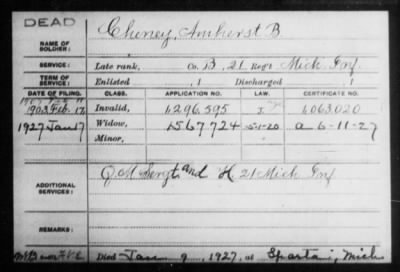 DEAD
Cheney, Amherst B.
NAME OF SOLDIER:
SERVICE: Late rank, Co. B, 21 Reg't Mich Inf.
TERM OF SERVICE: Enlisted , 1 Discharged , 1
DATE OF FILING. CLASS. APPLICATION NO. LAW. CERTIFICATE NO.
1903 Feb. 17 Invalid, 1,296,595 1,063,020
1927 Jan 17 Widow, 1,567,724 5-1-20 a 6-11-27
Minor,
ADDITIONAL SERVICES: Q. M. Sergt. and H 21 Mich Inf
REMARKS:
Died Jan 9, 1927, at Sparta, Mich